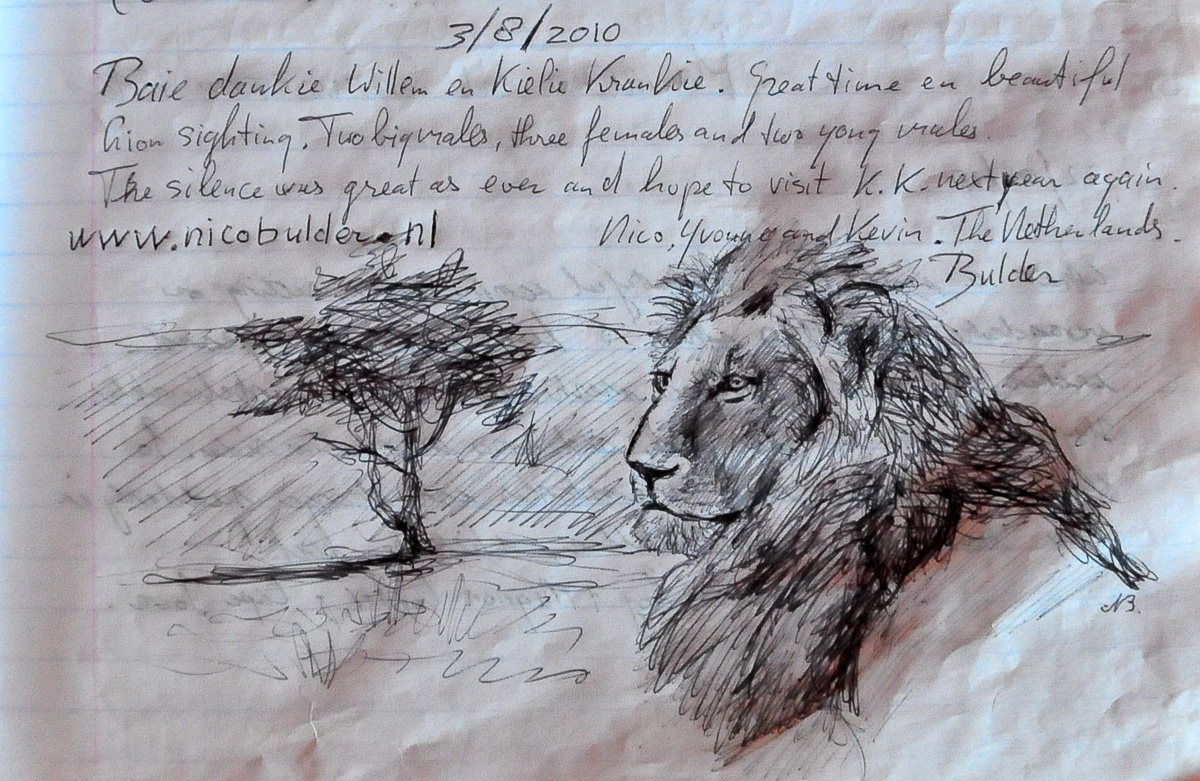 3/8/2010
Baie dankie Willem en Kielie Krankie. Great time en beautiful
Lion sighting. Two big males, three females and two yong males.
The silence was great as ever and hope to visit K.K. next year again.
www.nicobulder.nl Nico, Yvonne and Kevin. The Netherlands.
Bulder
NB.